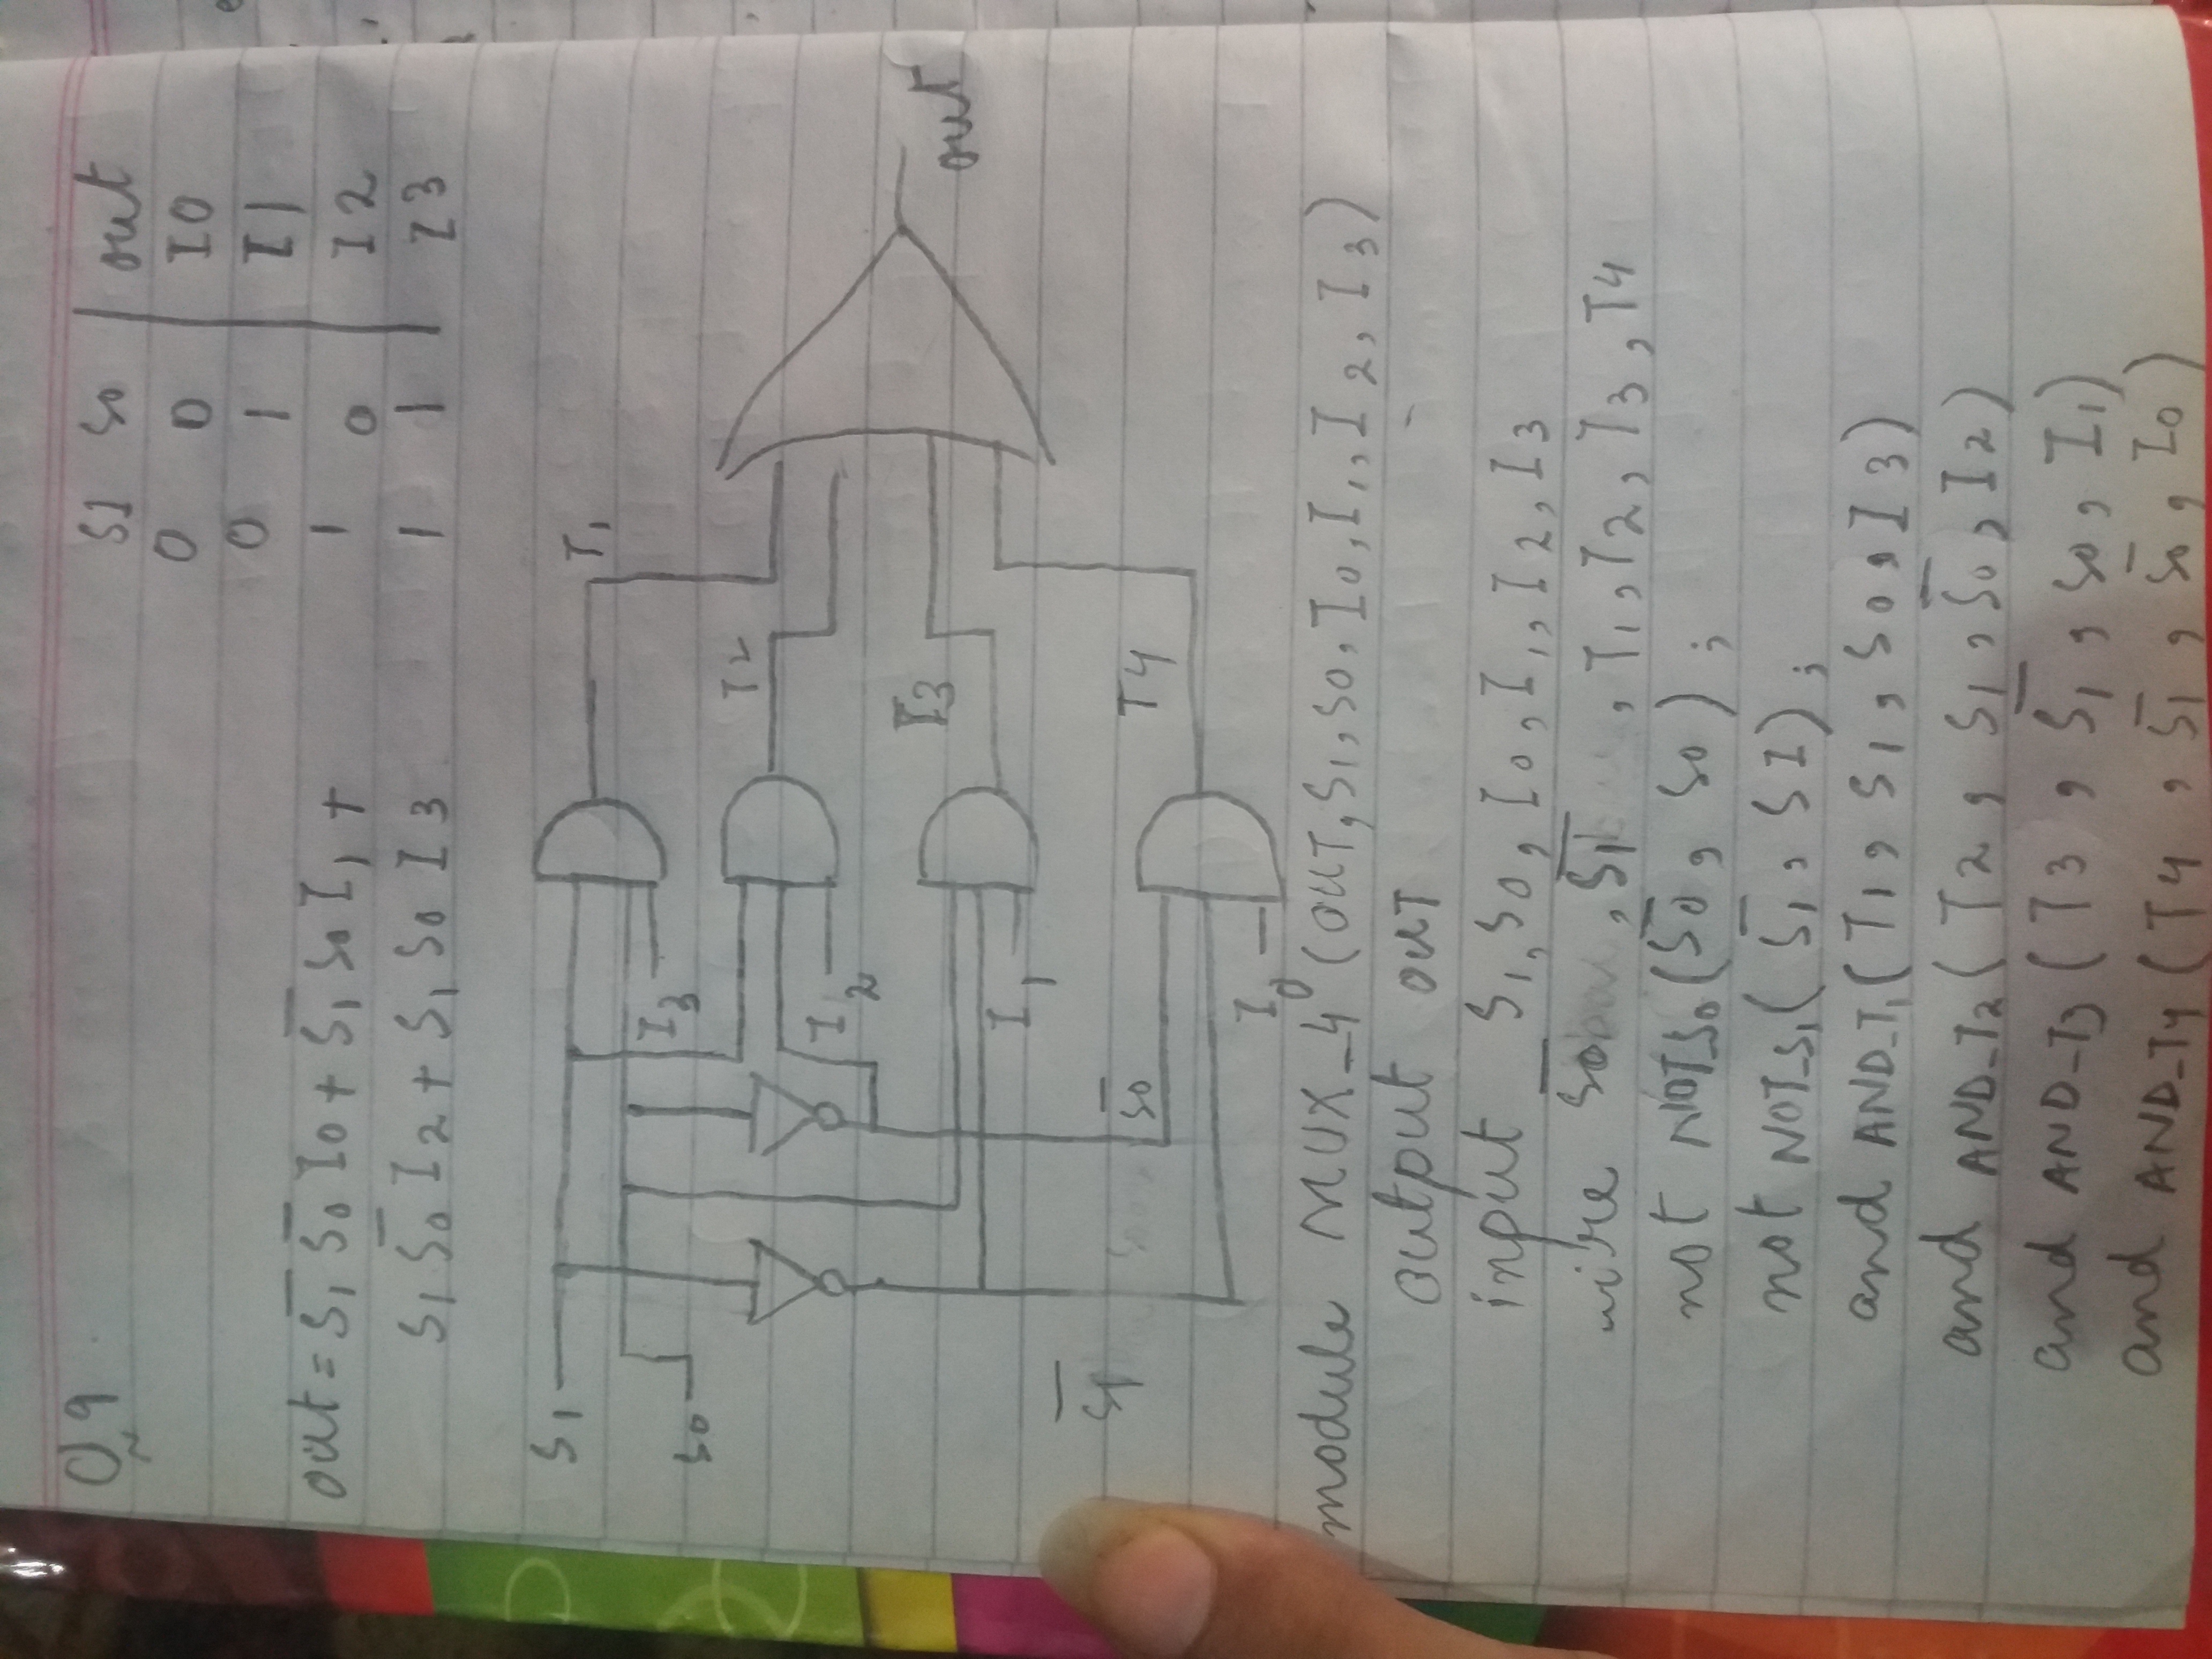 Q9
S1 S0 | out
0 0 | I0
0 1 | I1
1 0 | I2
1 1 | I3
out = S̅₁ S̅₀ I₀ + S̅₁ S₀ I₁ +
S₁ S̅₀ I₂ + S₁ S₀ I₃
S₁
S₀
I₃
T₁
I₂
T₂
I₁
I₃
out
S̅₁
S̅₀
T₄
I₀
module MUX_4 (OUT, S₁, S₀, I₀, I₁, I₂, I₃)
output OUT
input S₁, S₀, I₀, I₁, I₂, I₃
wire S̅₀, S̅₁, T₁, T₂, T₃, T₄
not NOT_S₀ (S̅₀, S₀);
not NOT_S₁ (S̅₁, SI);
and AND_T₁ (T₁, S₁, S₀, I₃)
and AND_T₂ (T₂, S₁, S̅₀, I₂)
and AND_T₃ (T₃, S̅₁, S₀, I₁)
and AND_T₄ (T₄, S̅₁, S̅₀, I₀)